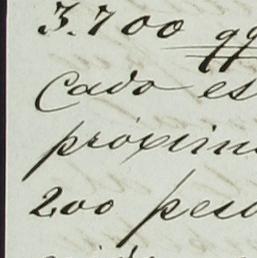 3.700 qq
Cado es
próxim
200 peso